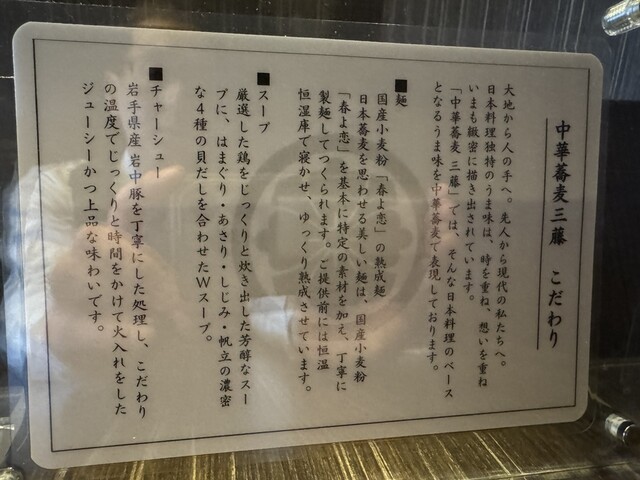 中華蕎麦三藤 こだわり
大地から人の手へ。先人から現代の私たちへ。
日本料理独特のうま味は、時を重ね、想いを重ね
いまも緻密に描き出されています。
「中華蕎麦 三藤」では、そんな日本料理のベース
となるうま味を中華蕎麦で表現しております。
■麺
国産小麦粉「春よ恋」の熟成麺
日本蕎麦を思わせる美しい麺は、国産小麦粉
「春よ恋」を基本に特定の素材を加え、丁寧に
製麺してつくられます。ご提供前には恒温
恒湿庫で寝かせ、ゆっくり熟成させています。
■スープ
厳選した鶏をじっくりと炊き出した芳醇なスー
プに、はまぐり・あさり・しじみ・帆立の濃密
な4種の貝だしを合わせたWスープ。
■チャーシュー
岩手県産 岩中豚を丁寧にした処理し、こだわり
の温度でじっくりと時間をかけて火入れをした
ジューシーかつ上品な味わいです。